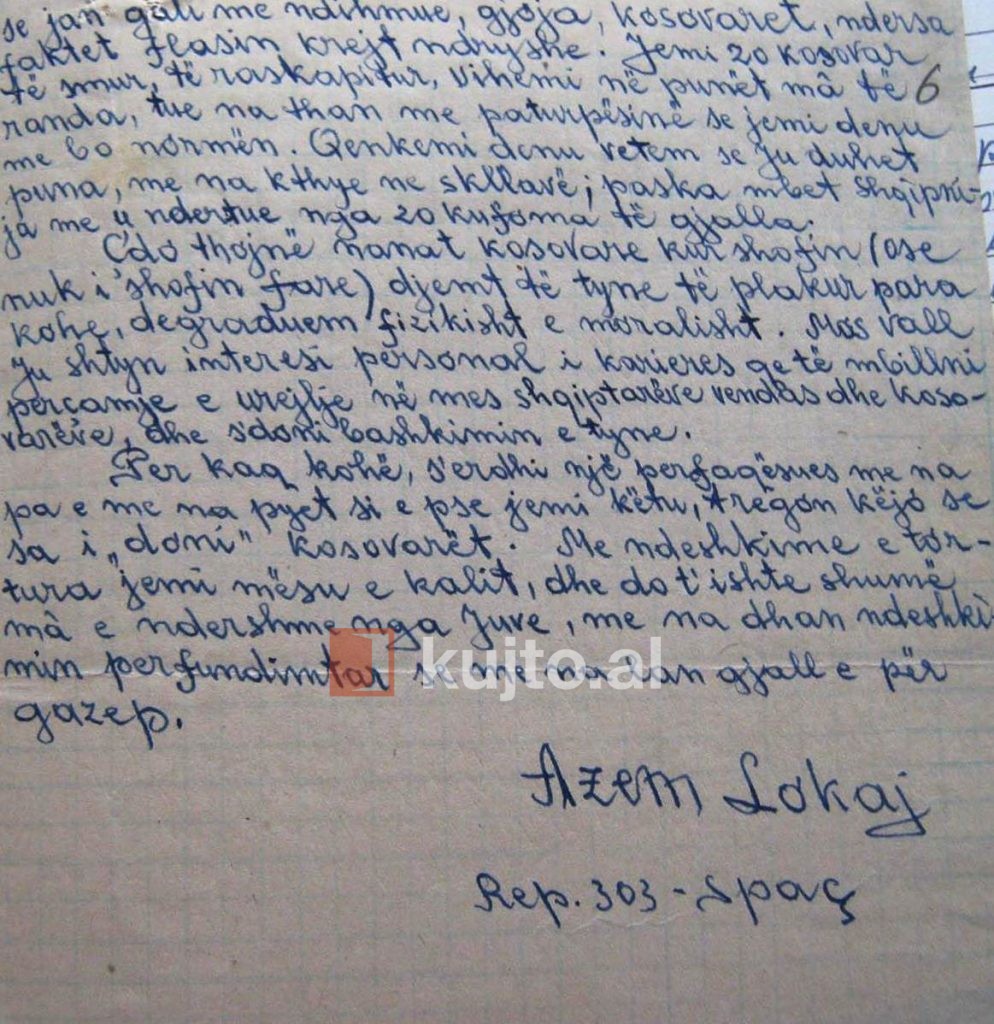 se jan gati me ndihmue, gjoja, kosovarët, ndersa
faktet flasin krejt ndryshe. Jemi 20 kosovar
të smur, të raskapitur, vihemi në punët mâ të 6
randa, tue na than me paturpësinë se jemi denu
me bo normën. Qenkemi denu vetem se Ju duhet
puna, me na kthye ne skllavë; paska mbet Shqipni-
ja me u ndertue nga 20 kufoma të gjalla.
Ç'do thojnë nanat kosovare kur shofin (ose
nuk i shofin fare) djemt të tyne të plakur para
kohe, degraduem fizikisht e moralisht. Mos vall
Ju shtyn interesi personal i karieres qe të mbillni
perçamje e urejtje në mes shqiptarëve vendas dhe koso-
varëve, dhe s'doni bashkimin e tyne.
Per kaq kohë, s'erdhi një perfaqësues me na
pa e me na pyet si e pse jemi këtu, tregon këjo se
sa i "doni" kosovarët. Me ndeshkime e tor-
tura jemi mësu e kalit, dhe do t'ishte shumë
mâ e ndershme nga Juve, me na dhan ndeshki-
min perfundimtar se me na lan gjall e për
gazep.
kujto.al
Azem Lokaj
Rep. 303 - Spaç